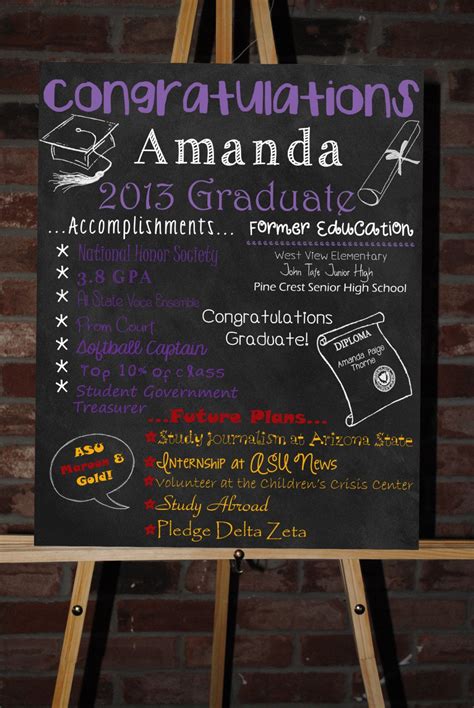 Congratulations
Amanda
2013 Graduate
...Accomplishments...
National Honor Society
3.8 GPA
All State Voice Ensemble
Prom Court
Softball Captain
Top 10% of class
Student Government
Treasurer
Former Education
West View Elementary
John Tate Junior High
Pine Crest Senior High School
Congratulations
Graduate!
DIPLOMA
Amanda Paige
Thorne
...Future Plans...
Study Journalism at Arizona State
Internship at ASU News
Volunteer at the Children's Crisis Center
Study Abroad
Pledge Delta Zeta
ASU
Maroon &
Gold!